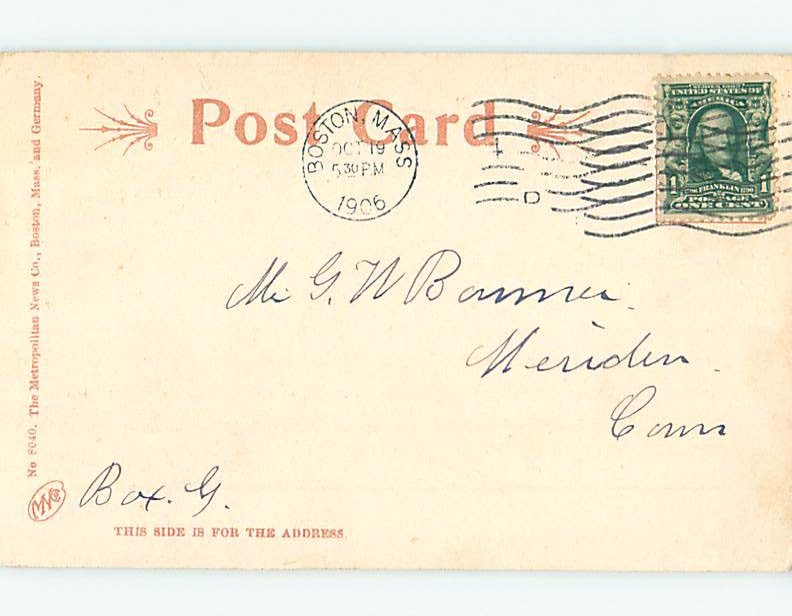 Post Card
BOSTON, MASS
OCT 19
5 30 PM
1906
D
SERIES 1902
UNITED STATES OF
AMERICA
1 FRANKLIN 1
POSTAGE
ONE CENT
Mr G. W. Bonner.
Meriden.
Conn
Box. G.
THIS SIDE IS FOR THE ADDRESS.
No 8040. The Metropolitan News Co., Boston, Mass. and Germany.
MN Co